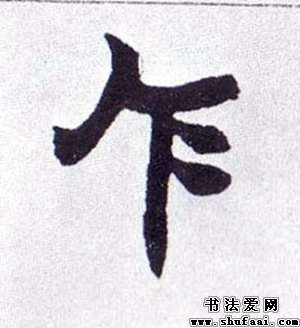 乍
书法爱网
www.shufaai.com